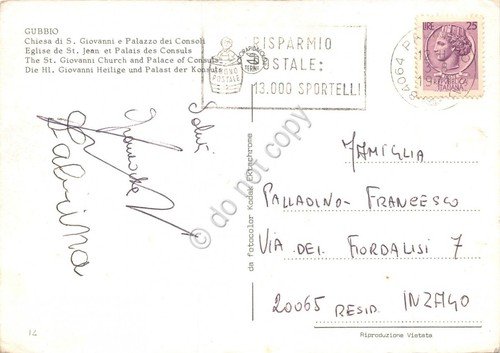 GUBBIO
Chiesa di S. Giovanni e Palazzo dei Consoli
Église de St. Jean et Palais des Consuls
The St. Giovanni Church and Palace of Consuls
Die Hl. Giovanni Heilige und Palast der Konsuls
RISPARMIO
POSTALE:
13.000 SPORTELLI
LIRE 25
ITALIANA
Saluti
Sabrina
do not copy
da fotocolor Kodak Ektachrome
FAMIGLIA
PALLADINO- FRANCESCO
VIA DEI FIORDALISI 7
20065 RESID. INZAGO
Riproduzione Vietata